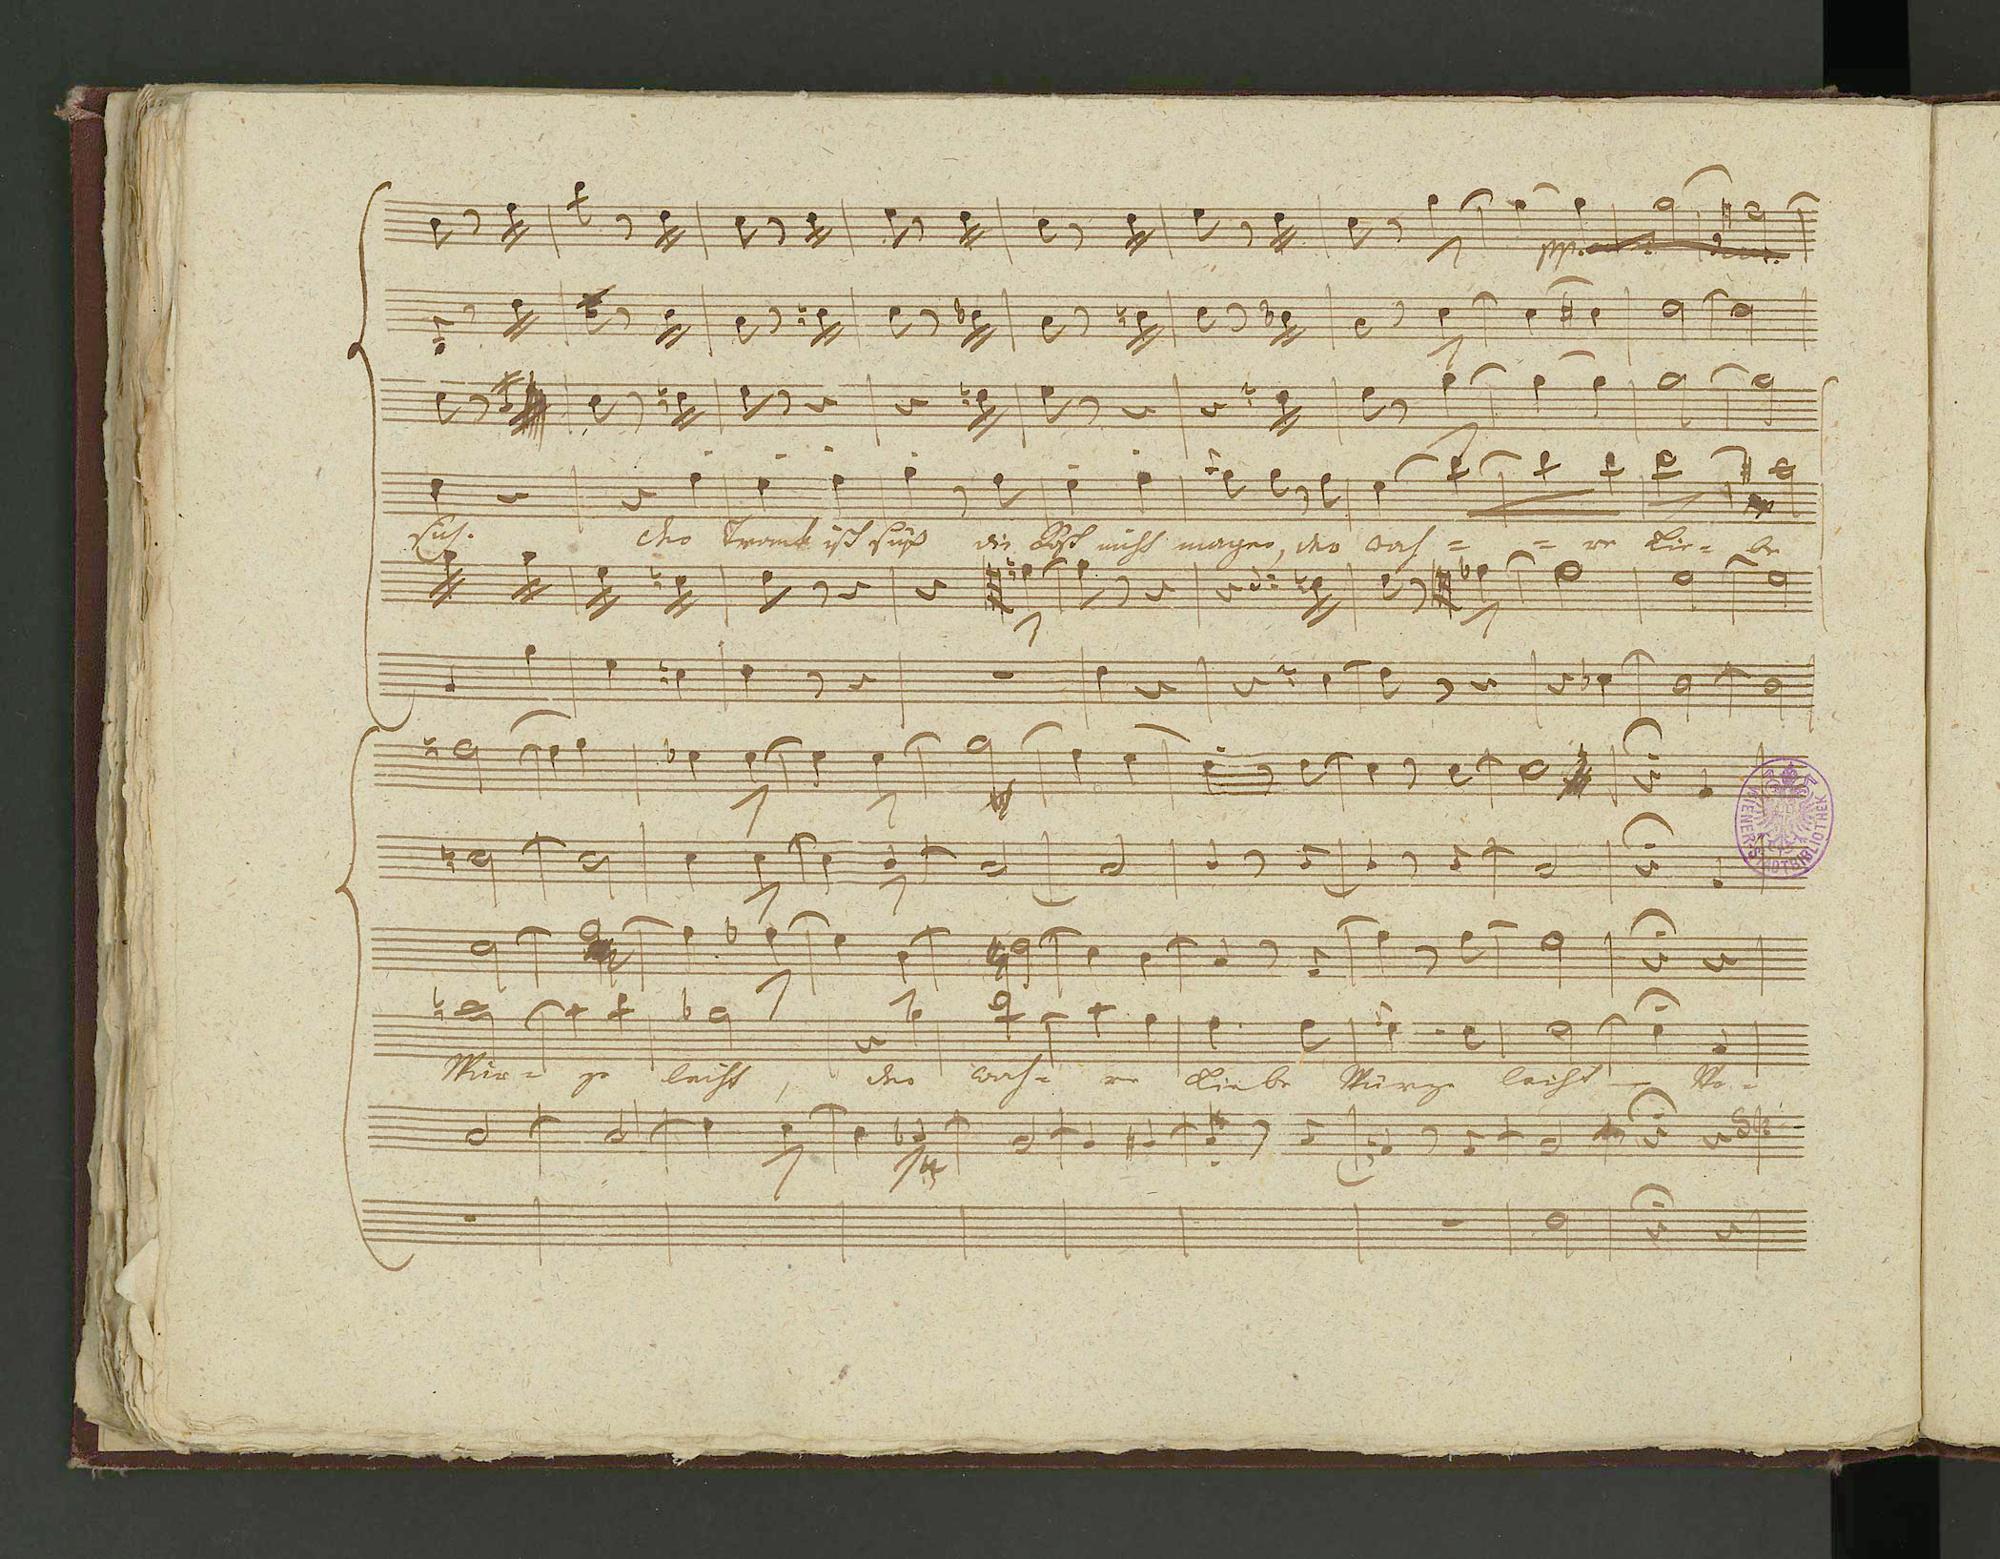 pp.
sich. der Trank ist süß die Kost nicht mager, der wah = = re Lie = be
Wür = ze leiht, der wah = re Liebe Würze leiht —
WIENER STADTBIBLIOTHEK